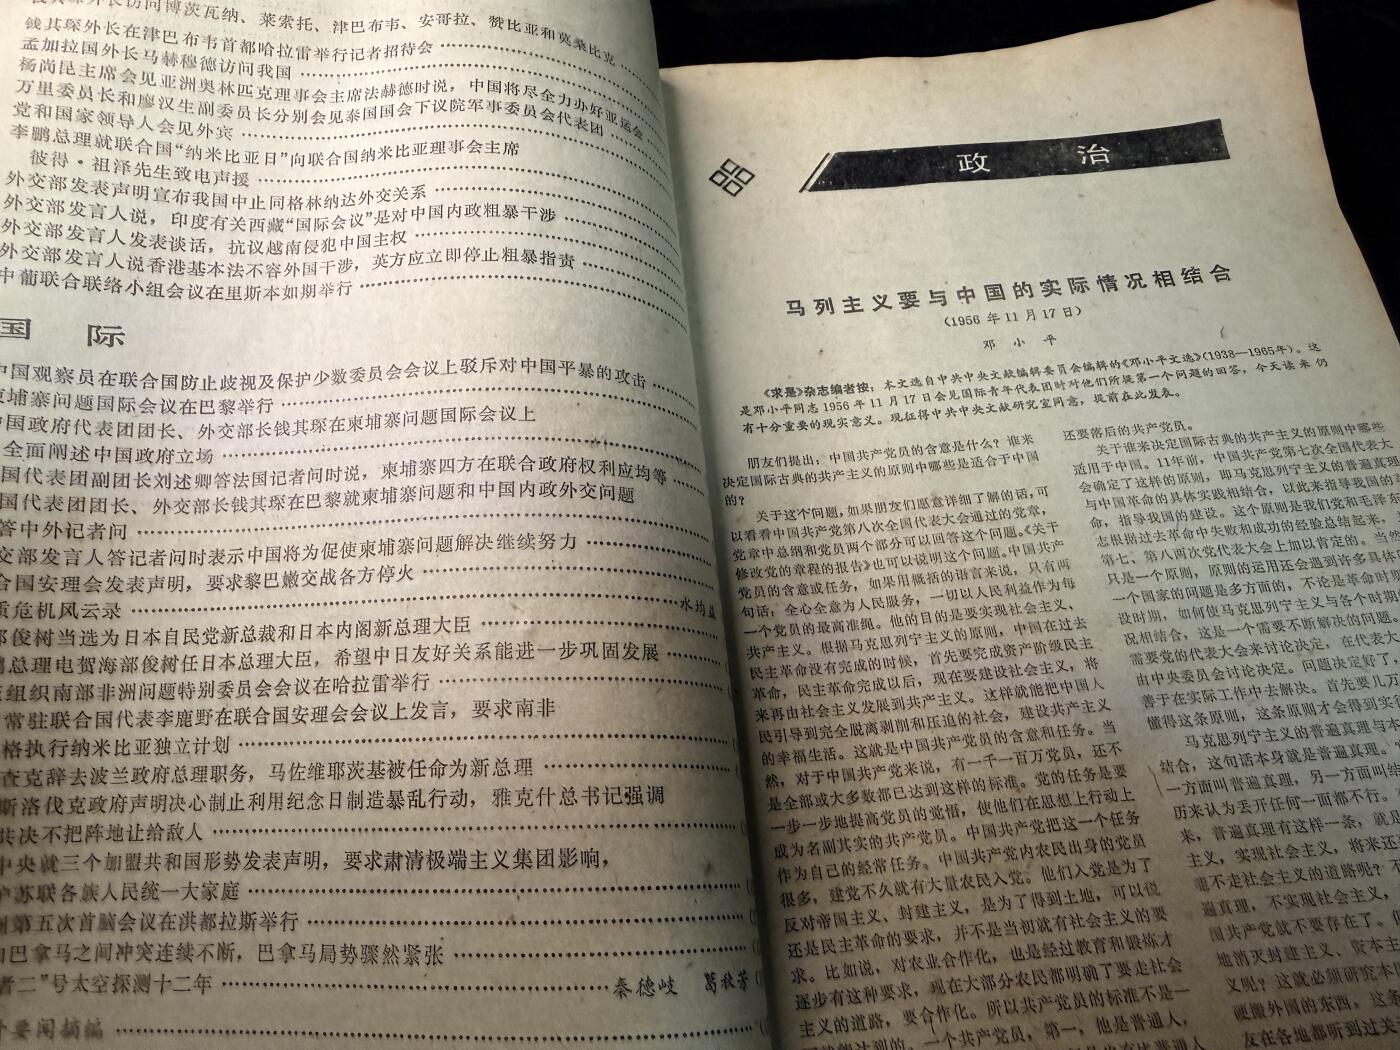 外长访问博茨瓦纳、莱索托、津巴布韦、安哥拉、赞比亚和莫桑比克
钱其琛外长在津巴布韦首都哈拉雷举行记者招待会
孟加拉国外长马赫穆德访问我国
杨尚昆主席会见亚洲奥林匹克理事会主席法赫德时说，中国将尽全力办好亚运会
万里委员长和廖汉生副委员长分别会见泰国国会下议院军事委员会代表团
党和国家领导人会见外宾
李鹏总理就联合国“纳米比亚日”向联合国纳米比亚理事会主席
彼得·祖泽先生致电声援
外交部发表声明宣布我国中止同格林纳达外交关系
外交部发言人说，印度有关西藏“国际会议”是对中国内政粗暴干涉
外交部发言人发表谈话，抗议越南侵犯中国主权
外交部发言人说香港基本法不容外国干涉，英方应立即停止粗暴指责
中葡联合联络小组会议在里斯本如期举行
国 际
中国观察员在联合国防止歧视及保护少数委员会会议上驳斥对中国平暴的攻击
柬埔寨问题国际会议在巴黎举行
中国政府代表团团长、外交部长钱其琛在柬埔寨问题国际会议上
全面阐述中国政府立场
国代表团副团长刘述卿答法国记者问时说，柬埔寨四方在联合政府权利应均等
国代表团团长、外交部长钱其琛在巴黎就柬埔寨问题和中国内政外交问题
答中外记者问
交部发言人答记者问时表示中国将为促使柬埔寨问题解决继续努力
合国安理会发表声明，要求黎巴嫩交战各方停火
质危机风云录 水均益
部俊树当选为日本自民党新总裁和日本内阁新总理大臣
鹏总理电贺海部俊树任日本总理大臣，希望中日友好关系能进一步巩固发展
组织南部非洲问题特别委员会会议在哈拉雷举行
常驻联合国代表李鹿野在联合国安理会会议上发言，要求南非
格执行纳米比亚独立计划
查克辞去波兰政府总理职务，马佐维耶茨基被任命为新总理
斯洛伐克政府声明决心制止利用纪念日制造暴乱行动，雅克什总书记强调
共决不把阵地让给敌人
中央就三个加盟共和国形势发表声明，要求肃清极端主义集团影响，
护苏联各族人民统一大家庭
洲第五次首脑会议在洪都拉斯举行
和巴拿马之间冲突连续不断，巴拿马局势骤然紧张
者二”号太空探测十二年 秦德岐 葛秋芳
外要闻摘编
政 治
马列主义要与中国的实际情况相结合
（1956 年 11 月 17 日）
邓 小 平
《求是》杂志编者按：本文选自中共中央文献编辑委员会编辑的《邓小平文选》（1938—1965年）。这
是邓小平同志 1956 年 11 月 17 日会见国际青年代表团时对他们所提第一个问题的回答，今天读来仍
有十分重要的现实意义。现征得中共中央文献研究室同意，提前在此发表。
朋友们提出，中国共产党员的含意是什么？谁来
决定国际古典的共产主义的原则中哪些是适合于中国
的？
关于这个问题，如果朋友们愿意详细了解的话，可
以看看中国共产党第八次全国代表大会通过的党章，
党章中总纲和党员两个部分可以回答这个问题。《关于
修改党的章程的报告》也可以说明这个问题。中国共产
党员的含意或任务，如果用概括的语言来说，只有两
句话：全心全意为人民服务，一切以人民利益作为每
一个党员的最高准绳。他的目的是要实现社会主义、
共产主义。根据马克思列宁主义的原则，中国在过去
民主革命没有完成的时候，首先要完成资产阶级民主
革命，民主革命完成以后，现在要建设社会主义，将
来再由社会主义发展到共产主义。这样就能把中国人
民引导到完全脱离剥削和压迫的社会，建设共产主义
的幸福生活。这就是中国共产党员的含意和任务。当
然，对于中国共产党来说，有一千一百万党员，还不
是全部或大多数都已达到这样的标准。党的任务是要
一步一步地提高党员的觉悟，使他们在思想上行动上
成为名副其实的共产党员。中国共产党把这一个任务
作为自己的经常任务。中国共产党内农民出身的党员
很多，建党不久就有大量农民入党。他们入党是为了
反对帝国主义、封建主义，是为了得到土地，可以说
还是民主革命的要求，并不是当初就有社会主义的要
求。比如说，对农业合作化，也是经过教育和锻炼才
逐步有这种要求，现在大部分农民都明确了要走社会
主义的道路，要合作化。所以共产党员的标准不是一
达到的。一个共产党员，第一，他是普通人，
还要落后的共产党员。
关于谁来决定国际古典的共产主义的原则中哪些
适用于中国。11年前，中国共产党第七次全国代表大
会确定了这样的原则，即马克思列宁主义的普遍真理
与中国革命的具体实践相结合，以此来指导我国的革
命，指导我国的建设。这个原则是我们党和毛泽东
志根据过去革命中失败和成功的经验总结起来，
第七、第八两次党代表大会上加以肯定的。当然
只是一个原则，原则的运用还会遇到许多具体
一个国家的问题是多方面的，不论是革命时期
设时期，如何使马克思列宁主义与各个时期
况相结合，这是一个需要不断解决的问题。
需要党的代表大会来讨论决定，在代表大
由中央委员会讨论决定。问题决定好了，
善于在实际工作中去解决。首先要几万
懂得这条原则，这条原则才会得到实
马克思列宁主义的普遍真理与本
结合，这句话本身就是普遍真理。
一方面叫普遍真理，另一方面叫结
历来认为丢开任何一面都不行。
来，普遍真理有这样一条，就是
主义，实现社会主义，将来还
能不走社会主义的道路呢？不
遍真理，不实现社会主义，
国共产党就不要存在了。
地消灭封建主义、资本主
义呢？这就必须研究本国
硬搬外国的东西，这条
友在各地都听到过关于